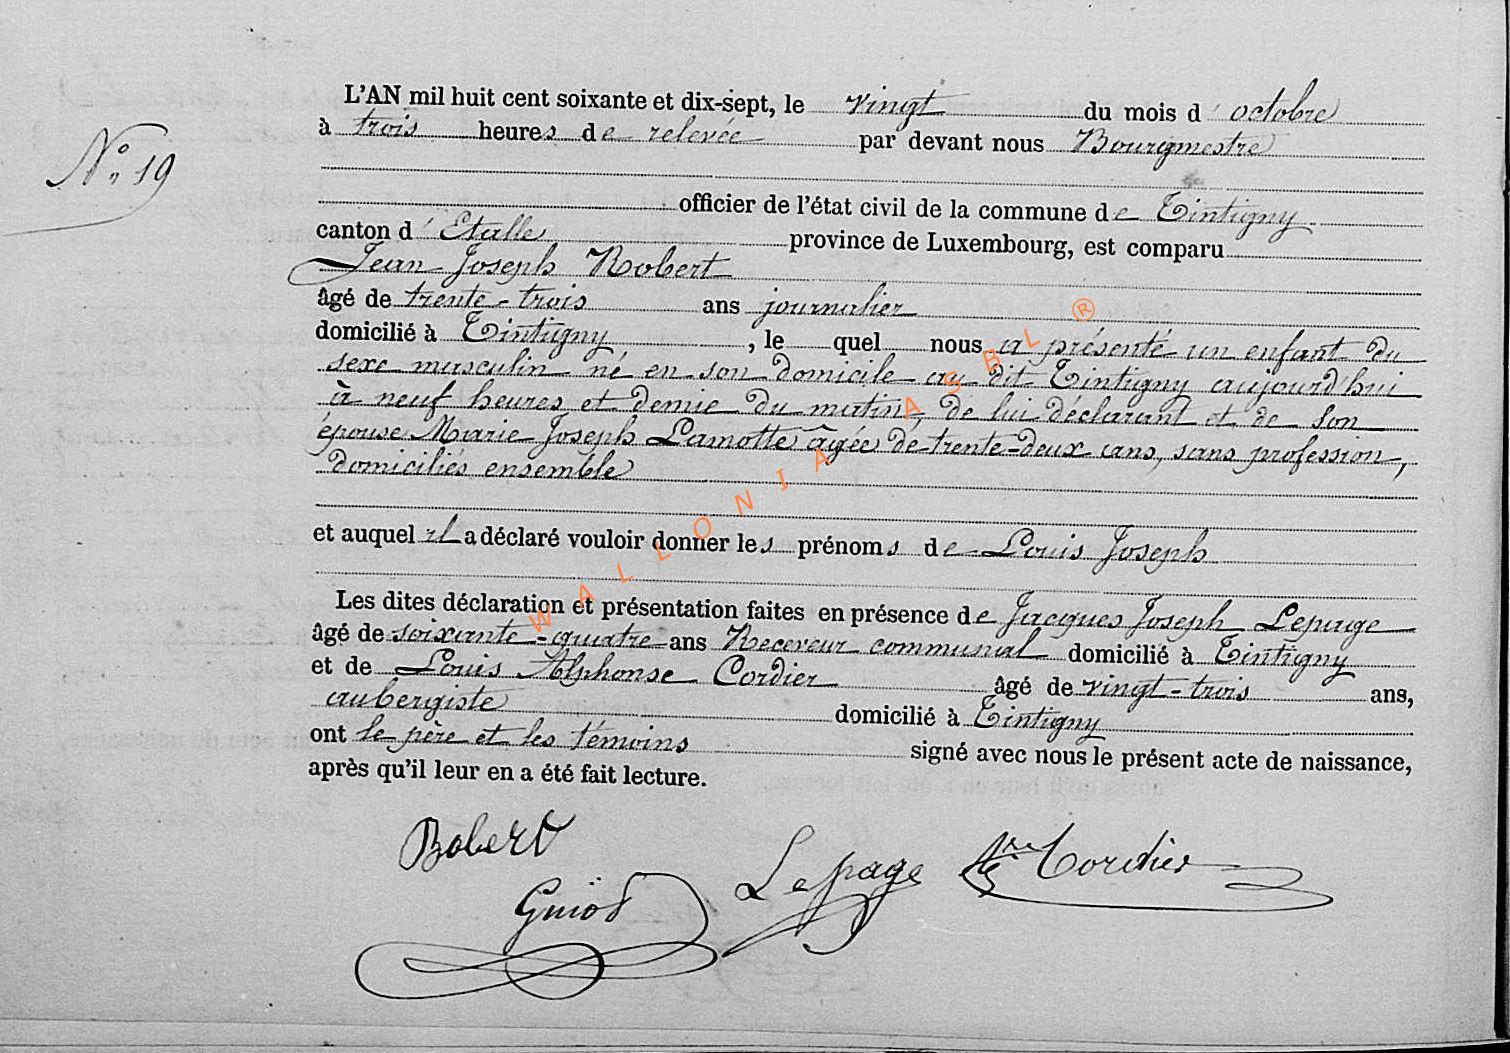 L'AN mil huit cent soixante et dix-sept, le vingt du mois d'octobre
à trois heures de relevée par devant nous Bourgmestre
N° 19
officier de l'état civil de la commune de Tintigny
canton d'Etalle province de Luxembourg, est comparu
Jean Joseph Robert
âgé de trente-trois ans journalier
domicilié à Tintigny, le quel nous a présenté un enfant du
sexe masculin né en son domicile au dit Tintigny aujourd'hui
à neuf heures et demie du matin, de lui déclarant et de son
épouse Marie Joseph Lamotte âgée de trente-deux ans, sans profession,
domiciliés ensemble
et auquel il a déclaré vouloir donner les prénoms de Louis Joseph
Les dites déclaration et présentation faites en présence de Jacques Joseph Lepage
âgé de soixante-quatre ans Receveur communal domicilié à Tintigny
et de Louis Alphonse Cordier âgé de vingt-trois ans,
aubergiste domicilié à Tintigny
ont le père et les témoins signé avec nous le présent acte de naissance,
après qu'il leur en a été fait lecture.
Robert
Lepage
Cordier
Guiot
WALLONIA ASBL ®